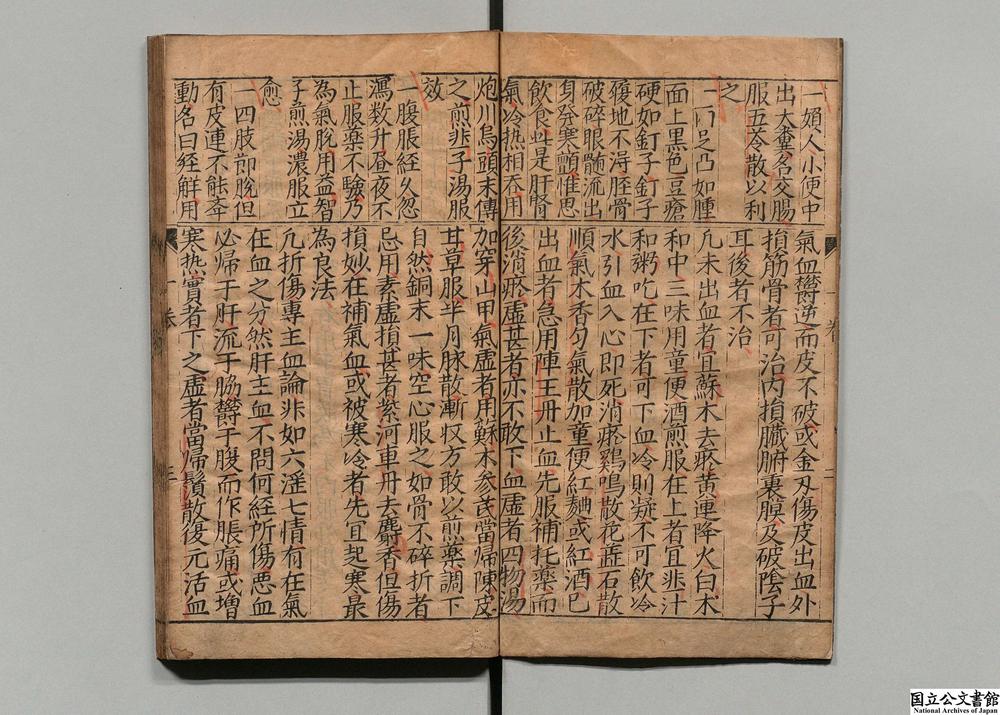 一婦人小便中
出大糞名交腸
服五苓散以利
之
足凸如腫
面上黒色豆瘡
硬如釘子釘子
履地不淂脛骨
破碎眼髓流出
身発寒顫惟思
飲食此是肝腎
氣冷热相吞用
氣血欝逆而皮不破或金刃傷皮出血外
損筋骨者可治内損臓腑裏膜及破陰子
耳後者不治
凢未出血者宜蘇木去瘀黄連降火白术
和中三味用童便酒煎服在上者宜韭汁
和粥吃在下者可下血冷則凝不可飲冷
水引血入心即死消瘀鷄鳴散花蕋石散
順氣木香匀氣散加童便紅麯或紅酒已
出血者急用陣王丹止血先服補托薬而
後消瘀虚甚者亦不敢下血虚者四物湯
炮川烏頭末傅
之煎韭子湯服
效
一腹脹經久忽
瀉数升昼夜不
止服薬不驗乃
為氣脫用益智
子煎湯濃服立
愈
一四肢節脫但
有皮連不能举
動名曰経觧用
加穿山甲氣虚者用蘇木参芪當帰陳皮
甘草服半月脉散漸収方敢以煎薬調下
自然銅末一味空心服之如骨不碎折者
忌用素虚損甚者紫河車丹去麝香但傷
損妙在補氣血或被寒冷者先宜起寒最
為良法
凢折傷專主血論非如六淫七情有在氣
在血之分然肝主血不問何経所傷悪血
必帰于肝流于脇欝于腹而作脹痛或増
寒热實者下之虚者當帰鬚散復元活血
国立公文書館
National Archives of Japan